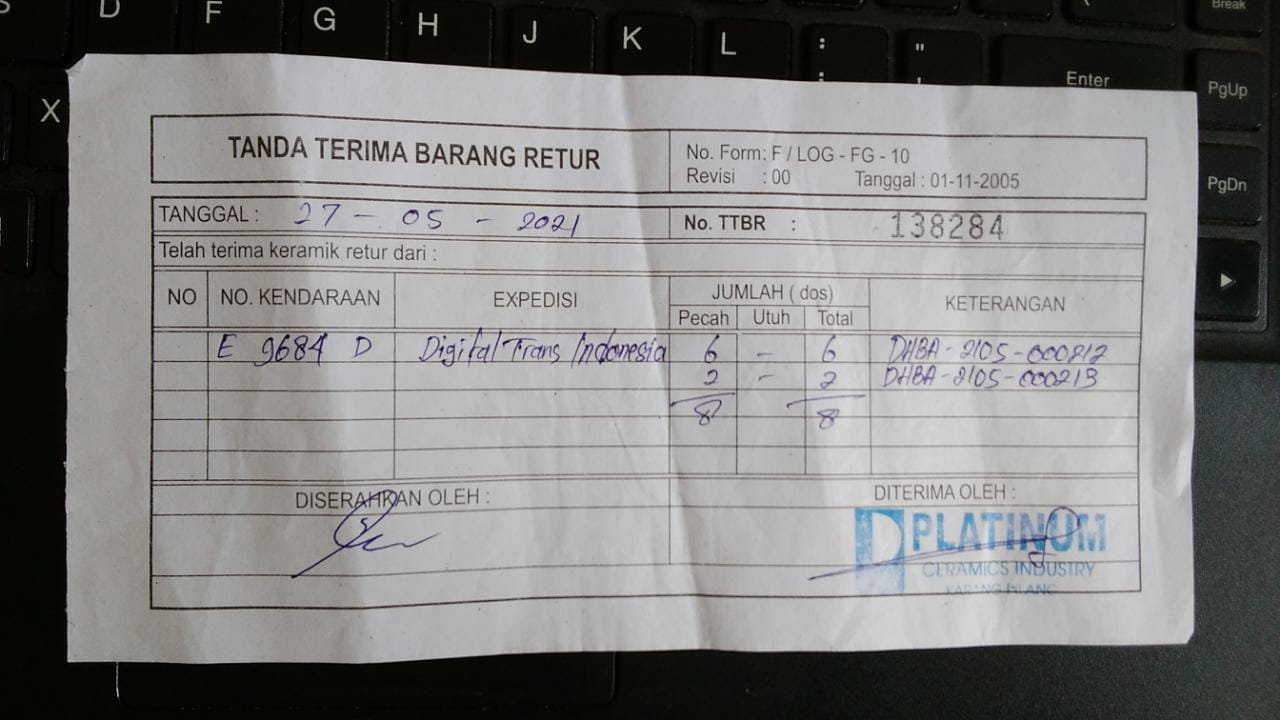 D F G H J K L : " Break
; ' Enter PgUp
X
PgDn
TANDA TERIMA BARANG RETUR
No. Form: F / LOG - FG - 10
Revisi : 00 Tanggal : 01-11-2005
TANGGAL : 27 - 05 - 2021 No. TTBR : 138284
Telah terima keramik retur dari :
NO NO. KENDARAAN EXPEDISI JUMLAH ( dos) KETERANGAN
Pecah Utuh Total
E 9684 D Digital Trans Indonesia 6 - 6 DHBA-2105-000212
2 - 2 DHBA-2105-000213
8 8
DISERAHKAN OLEH : DITERIMA OLEH :
PLATINUM
CERAMICS INDUSTRY
KARANG PILANG